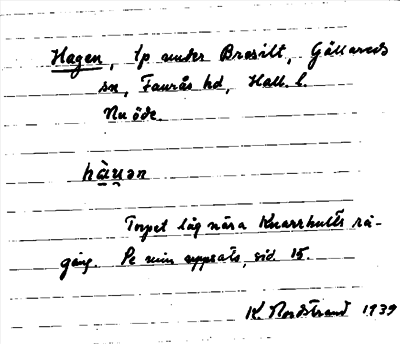 Hagen, tp under Brasilt, Gällareds
sn, Faurås hd, Hall. l.
Nu öde.
hàu̯ən
Torpet låg nära Knarrhults rå-
gång. Se min uppsats, sid. 15.
K. Nordstrand 1939